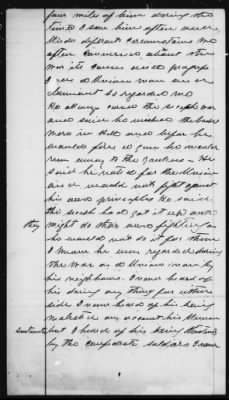 four miles of him during the
time I saw him often under
all the different circumstances we
often conversed about the
war its causes and
I was a Union man and
Claimant so regarded me
He always cursed the secesh war
and said he wished the
were in Hell and before he
would fire a gun he would
run away to the Yankees - He
said he voted for the Union
and or would not fight against
his own principles He said
the secesh had got it up and
they might do their own fighting
he would not do it for them
I know he was regarded during
the War as a Union man by
his neighbours. I never heard of
his doing any thing for either
side I never heard of his being
molested on account his Union
sentiments but I heard of his being threatened
by the confederate soldiers I never